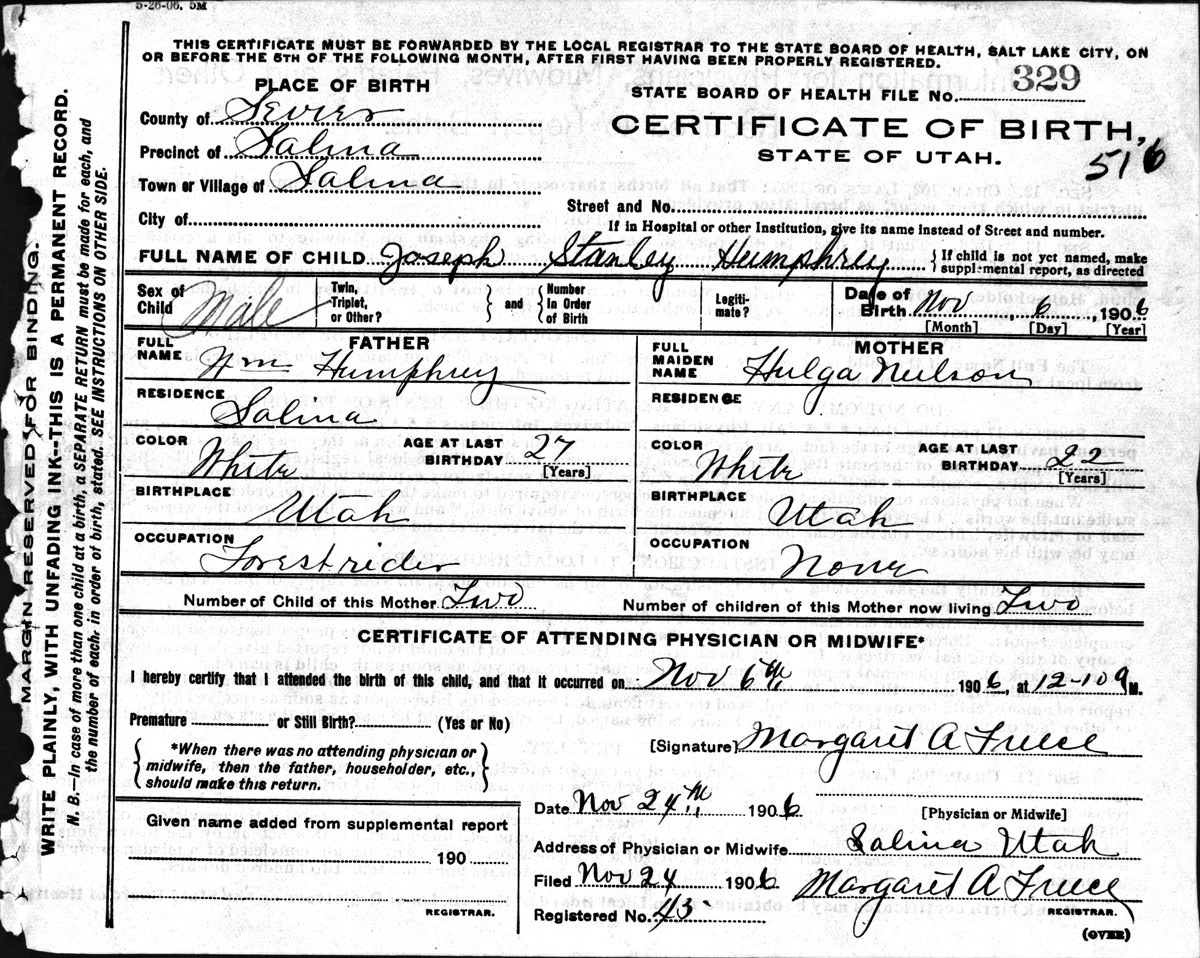 5-26-06. 5M
THIS CERTIFICATE MUST BE FORWARDED BY THE LOCAL REGISTRAR TO THE STATE BOARD OF HEALTH, SALT LAKE CITY, ON
OR BEFORE THE 5TH OF THE FOLLOWING MONTH, AFTER FIRST HAVING BEEN PROPERLY REGISTERED.
MARGIN RESERVED FOR BINDING.
WRITE PLAINLY, WITH UNFADING INK—THIS IS A PERMANENT RECORD.
N. B.—In case of more than one child at a birth, a SEPARATE RETURN must be made for each, and
the number of each, in order of birth, stated. SEE INSTRUCTIONS ON OTHER SIDE.
PLACE OF BIRTH
STATE BOARD OF HEALTH FILE No. 329
County of Sevier
CERTIFICATE OF BIRTH,
STATE OF UTAH.
516
Precinct of Salina
Town or Village of Salina
Street and No.
City of
If in Hospital or other Institution, give its name instead of Street and number.
FULL NAME OF CHILD Joseph Stanley Humphrey { If child is not yet named, make
supplemental report, as directed
Sex of Child Male Twin, Triplet, or Other? } and { Number In Order of Birth Legiti-mate? Date of Birth Nov 6, 1906
[Month] [Day] [Year]
FATHER
FULL NAME Wm Humphrey
MOTHER
FULL MAIDEN NAME Hulga Neilson
RESIDENCE Salina
RESIDENCE
COLOR White AGE AT LAST BIRTHDAY 27 [Years]
COLOR White AGE AT LAST BIRTHDAY 22 [Years]
BIRTHPLACE Utah
BIRTHPLACE Utah
OCCUPATION Forest rider
OCCUPATION None
Number of Child of this Mother Two Number of children of this Mother now living Two
CERTIFICATE OF ATTENDING PHYSICIAN OR MIDWIFE*
I hereby certify that I attended the birth of this child, and that it occurred on Nov 6th 1906, at 12-10 M.
Premature or Still Birth? (Yes or No)
*When there was no attending physician or
midwife, then the father, householder, etc.,
should make this return.
[Signature] Margaret A Freece
Date Nov 24th, 1906
[Physician or Midwife]
Given name added from supplemental report
190
REGISTRAR.
Address of Physician or Midwife Salina Utah
Filed Nov 24 1906 Margaret A Freece
Registered No. 45 REGISTRAR.
(OVER)